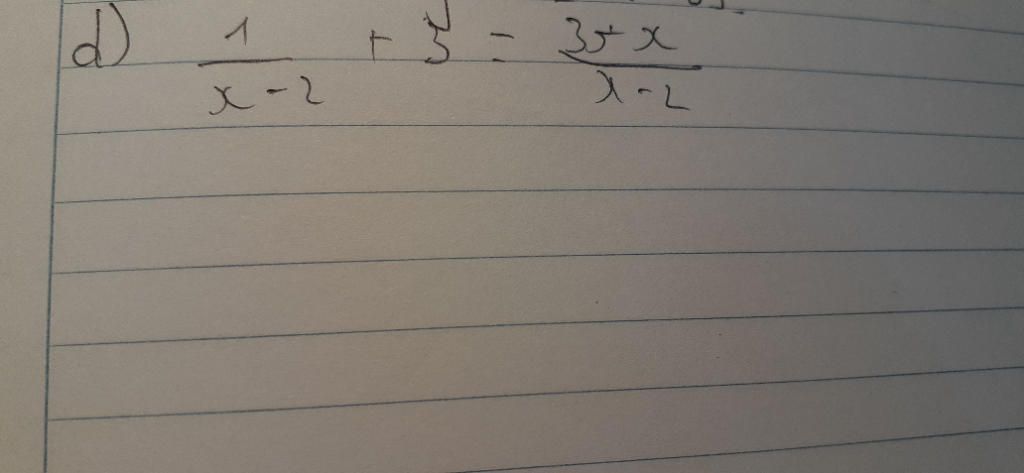 d) 1/(x-2) + 5 = (3+x)/(x-2)